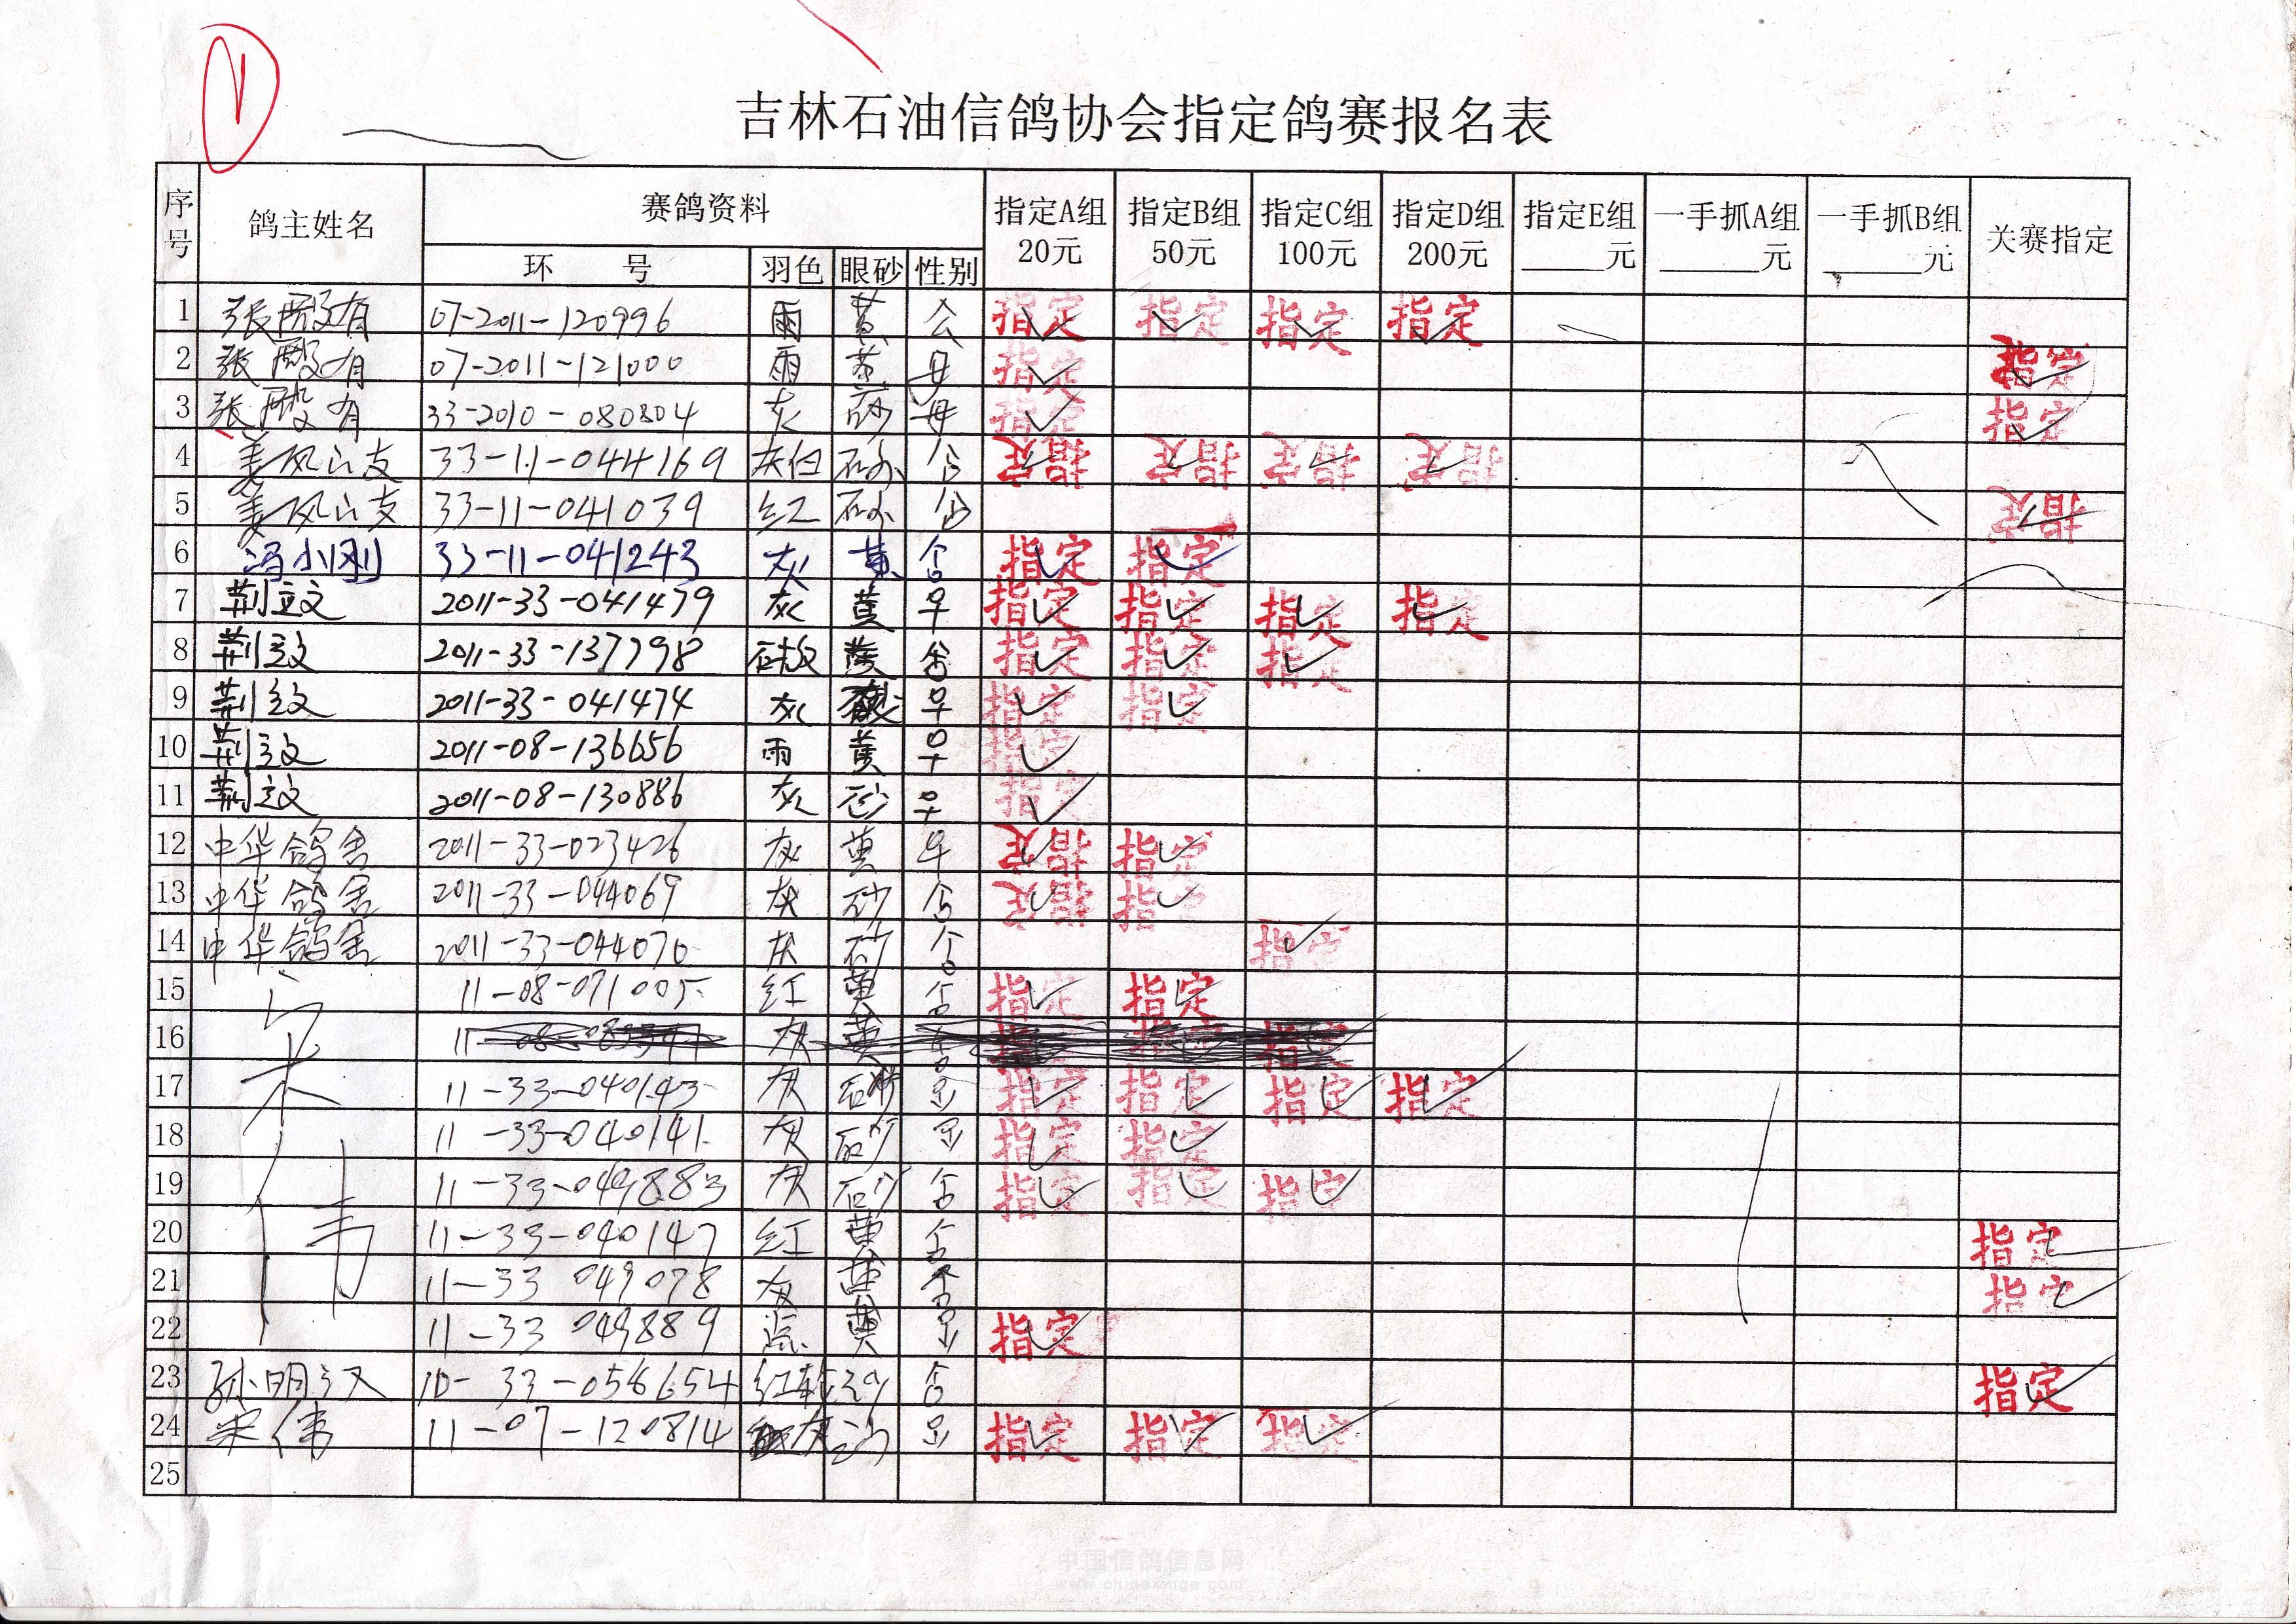 1
吉林石油信鸽协会指定鸽赛报名表
序号 鸽主姓名 赛鸽资料 指定A组 20元 指定B组 50元 指定C组 100元 指定D组 200元 指定E组 ____元 一手抓A组 ____元 一手抓B组 ____元 关赛指定
环 号 羽色 眼砂 性别
1 张殿有 07-2011-120996 雨 黄 公 指定 指定 指定 指定
2 张殿有 07-2011-121000 雨 黄 母 指定 指定
3 张殿有 33-2010-080804 灰 砂 母 指定 指定
4 姜凤山支 33-11-044169 灰白 石砂 指定 指定 指定 指定
5 姜凤山支 33-11-041039 红 石砂 指定
6 冯小刚 33-11-041243 灰 黄 指定 指定
7 荆立文 2011-33-041479 灰 黄 指定 指定 指定 指定
8 荆立文 2011-33-137798 黄 指定 指定 指定
9 荆立文 2011-33-041474 灰 指定 指定
10 荆立文 2011-08-136656 雨 黄 指定
11 荆立文 2011-08-130886 灰 砂 指定
12 中华鸽舍 2011-33-023426 灰 黄 指定 指定
13 中华鸽舍 2011-33-044069 灰 砂 指定 指定
14 中华鸽舍 2011-33-044070 灰 砂 指定
15 11-08-071005 红 黄 指定 指定
16 11 灰 黄
17 宋伟 11-33-040143 灰 石砂 指定 指定 指定 指定
18 11-33-040141 灰 石砂 指定 指定
19 11-33-049883 灰 石砂 指定 指定 指定
20 11-33-040147 红 黄 指定
21 11-33 049078 灰 黄 指定
22 11-33 049889 黄 指定
23 孙明汉 10-33-056654 红 指定
24 宋伟 11-07-120814 灰 指定 指定 指定
25
中国信鸽信息网
www.chinaxinge.com